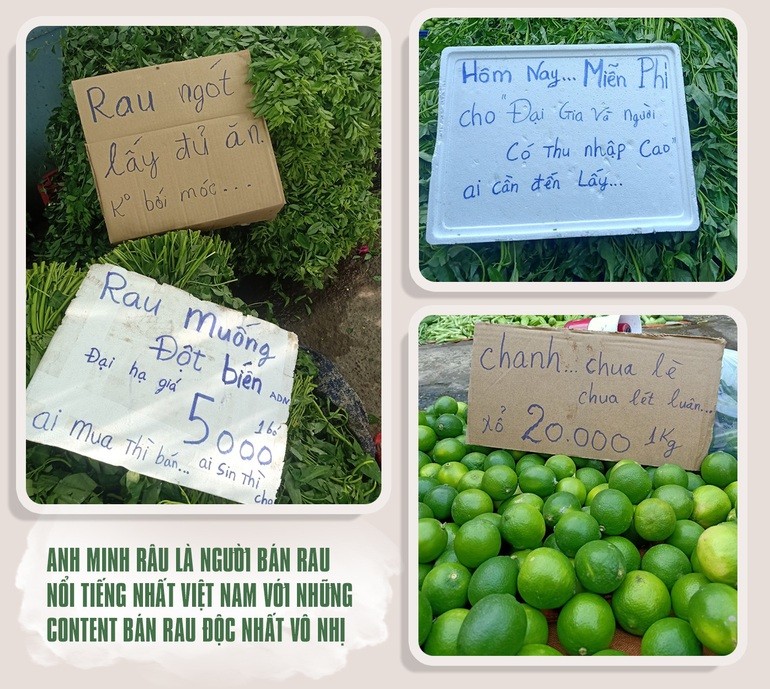 Rau ngót
lấy đủ ăn.
K° bới móc...
Rau muống
Đột biến ADN
Đại hạ giá
5000 1 bó
ai mua thì bán... ai sin thì
cho
Hôm Nay... Miễn Phí
cho "Đại Gia Và người
Có Thu nhập Cao"
ai cần đến Lấy...
chanh... chua lè
chua lét luân...
xổ 20.000 1Kg
ANH MINH RÂU LÀ NGƯỜI BÁN RAU
NỔI TIẾNG NHẤT VIỆT NAM VỚI NHỮNG
CONTENT BÁN RAU ĐỘC NHẤT VÔ NHỊ